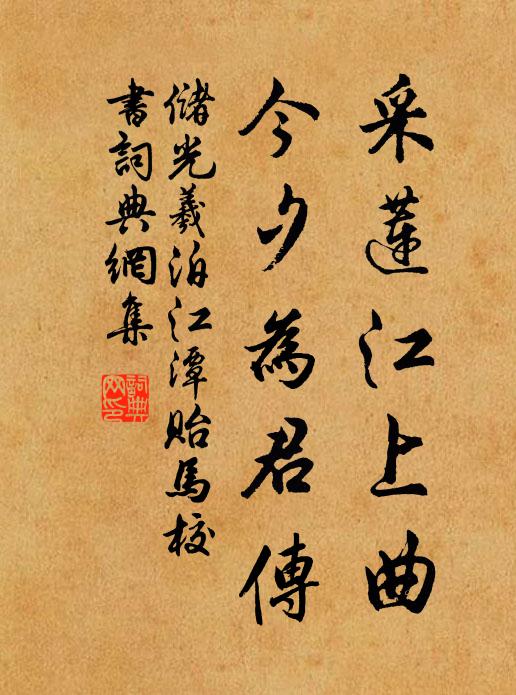 采蓮江上曲
今夕為君傳
儲光羲泊江潭貽馬校
書詞典網集
詞典
网印